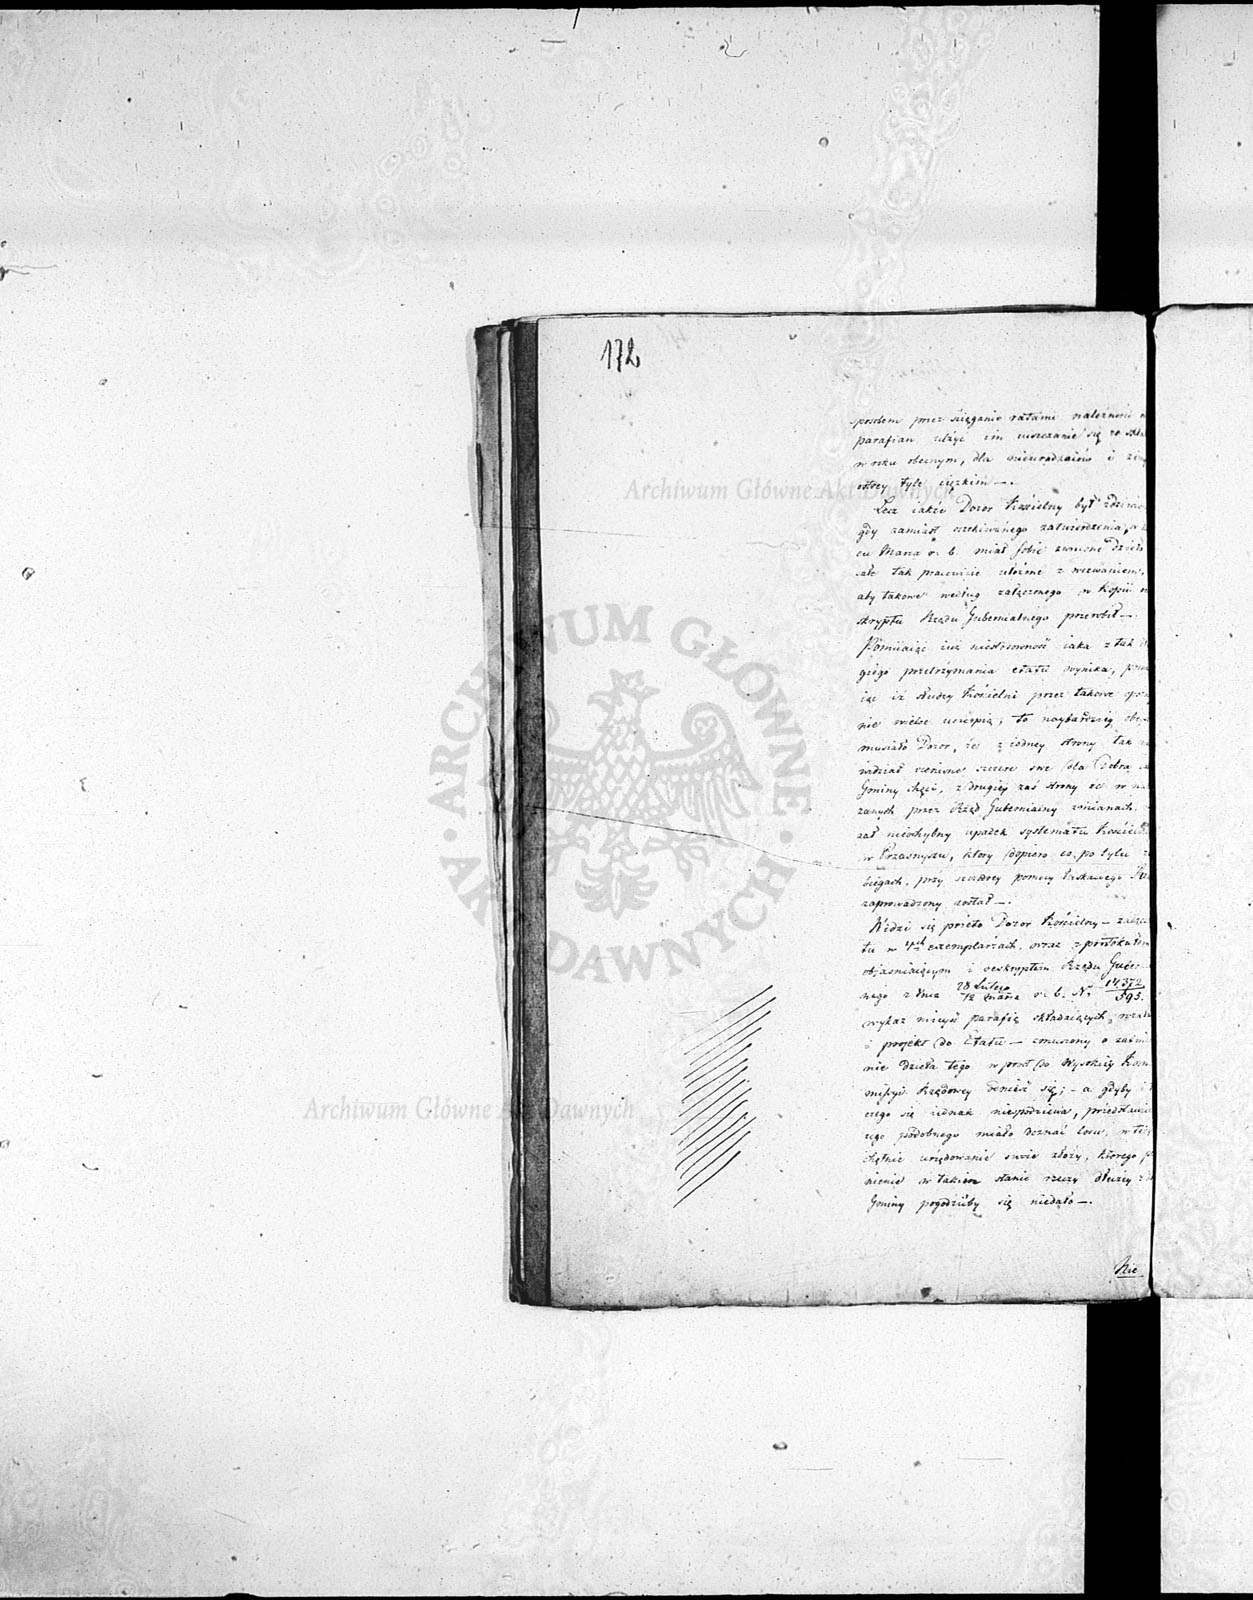 172
sposobem przez ściąganie ratami należności
parafian ulżyć im uiszczanie się ze
w roku obecnym, dla nieurodzaiów i
tyle ciężkim —.
Lecz iakże Dozor Kościelny był
gdy zamiast oczekiwanego zatwierdzenia,
cu Marca r. b. miał sobie zwrócone dzieło
całe tak pracowicie ułożone z wezwaniem,
aby takowe według załączonego w Kopii
skryptu Rządu Gubernialnego przerobił —.
Pomiiaiąc iuż niestosowność iaka z tak
giego przetrzymania etatu wynika,
iąc iż słudzy Kościelni przez takowe
nie wiele ucierpią; to naybardziéy
musiało Dozor, że z iedney strony tak
widział cenione szczere swe dla Dobra
Gminy chęci, z drugiéy zaś strony że w
zanych przez Rząd Gubernialny zmianach,
zał niechybny upadek systematu
w Przasnyszu, ktory dopiero co po tylu
biegach, przy szczodrey pomocy łaskawego
zaprowadzony został —.
Widzi się przeto Dozor Kościelny —
tu w 4ch exemplarzach, wraz z protokułem
obiaśniaiącym i reskryptem Rządu
nego z dnia 28 Lutego/12 Marca r. b. Nr 14372/595.
wykaz mieysc parafię składaiących,
i projekt do Etatu — zmuszony o
nie dzieła tego wprost do Wysokiéy
missyi Rządowey donieść się; — a gdyby
czego się iednak niespodziewa,
cego podobnego miało doznać losu,
chętnie urzędowanie swoie złoży, którego
nienie w takim stanie rzeczy dłużey
Gminy pogodzićby się niedało —.
Nie
Archiwum Główne Akt Dawnych
ARCHIWUM GŁÓWNE
AKT DAWNYCH
Archiwum Główne Akt Dawnych